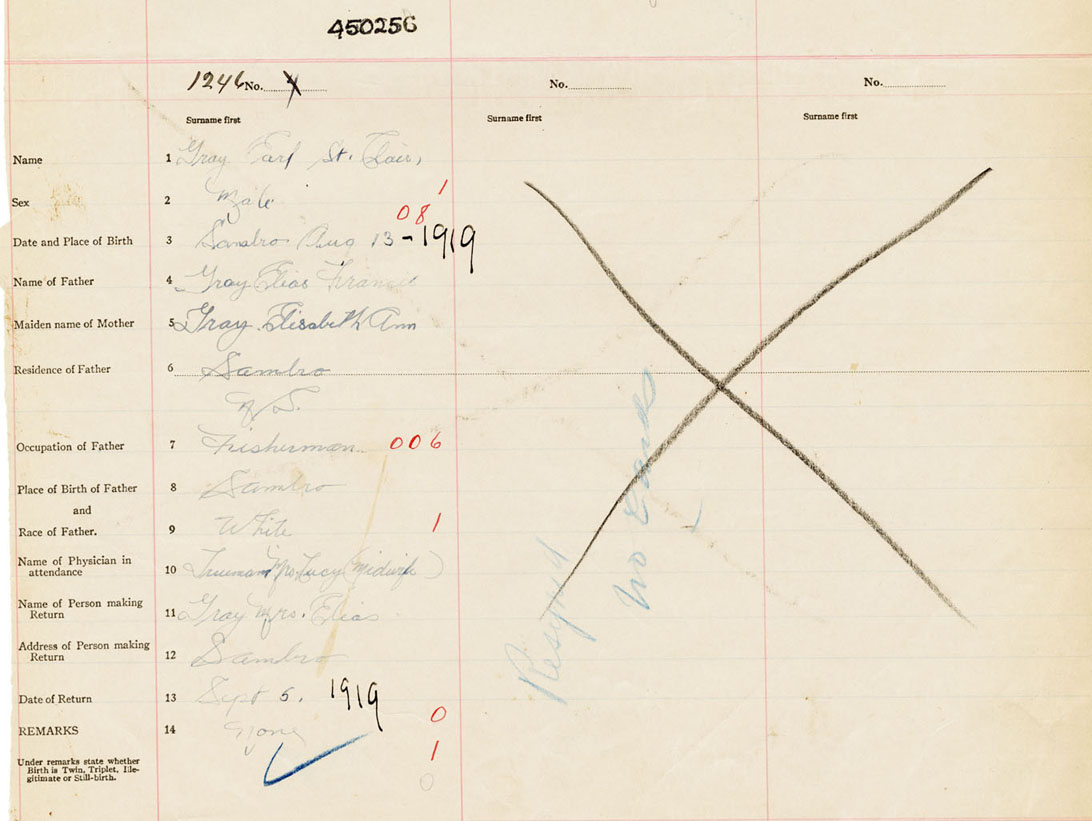 450256
1246 No. 4
No.
No.
Surname first
Surname first
Surname first
Name 1 Gray Earl St. Clair,
1
Sex 2 Male
08
Date and Place of Birth 3 Sambro Aug 13 - 1919
Name of Father 4 Gray Elias Francis
Maiden name of Mother 5 Gray Elisabeth Ann
Residence of Father 6 Sambro
N.S.
Occupation of Father 7 Fisherman 006
Place of Birth of Father 8 Sambro
and
Race of Father. 9 White 1
Name of Physician in
attendance 10 Trueman Mrs. Lucy (Midwife)
Name of Person making
Return 11 Gray Mrs. Elias
Address of Person making
Return 12 Sambro
Date of Return 13 Sept 5. 1919
0
REMARKS 14 None
1
Under remarks state whether
Birth is Twin, Triplet, Ille-
gitimate or Still-birth.
0
No Cards